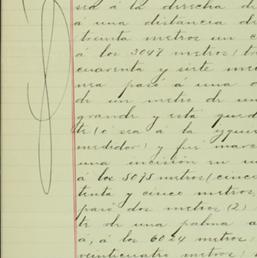 sea á la derecha de
á una distancia de
treinta metros un c
á los 3047 metros (tr
cuarenta y siete me
nea pasó á una
de un metro de un
grande y está qued
te (ó sea á la izqui
medidor) y fué marc
una incisión en
á los 5075 metros (cinco
tenta y cinco metros,
pasó dos metros (2)
te de una palma a
a, á los 6024 metros
veinticuatro metros)